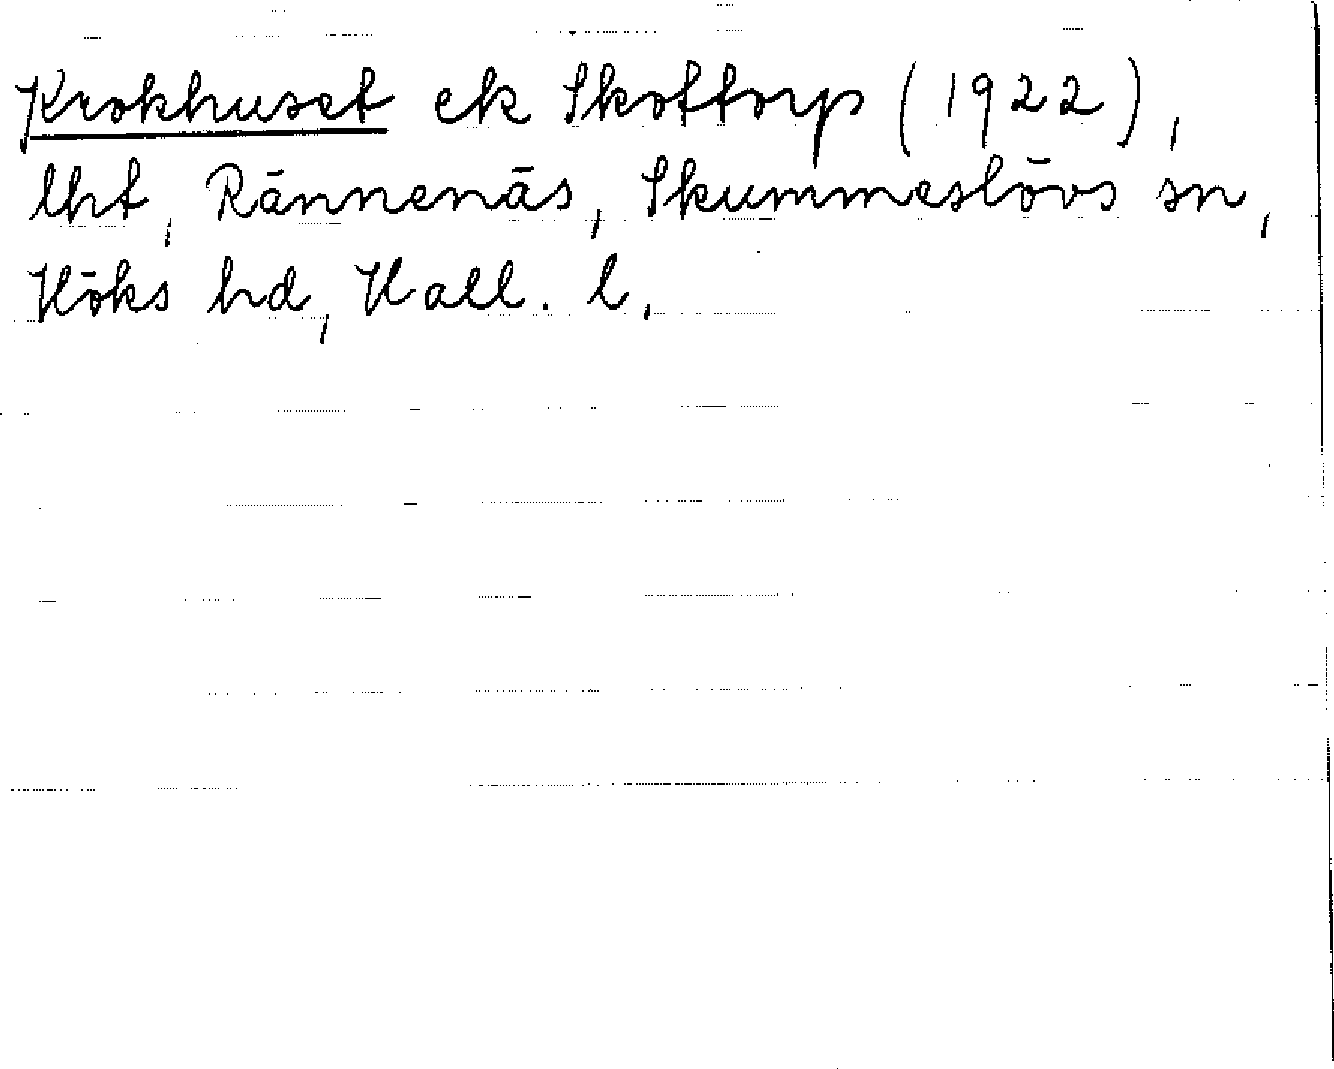 Krokhuset ek Skottorp (1922),
lht, Rännenäs, Skummeslövs sn,
Höks hd, Hall. l.